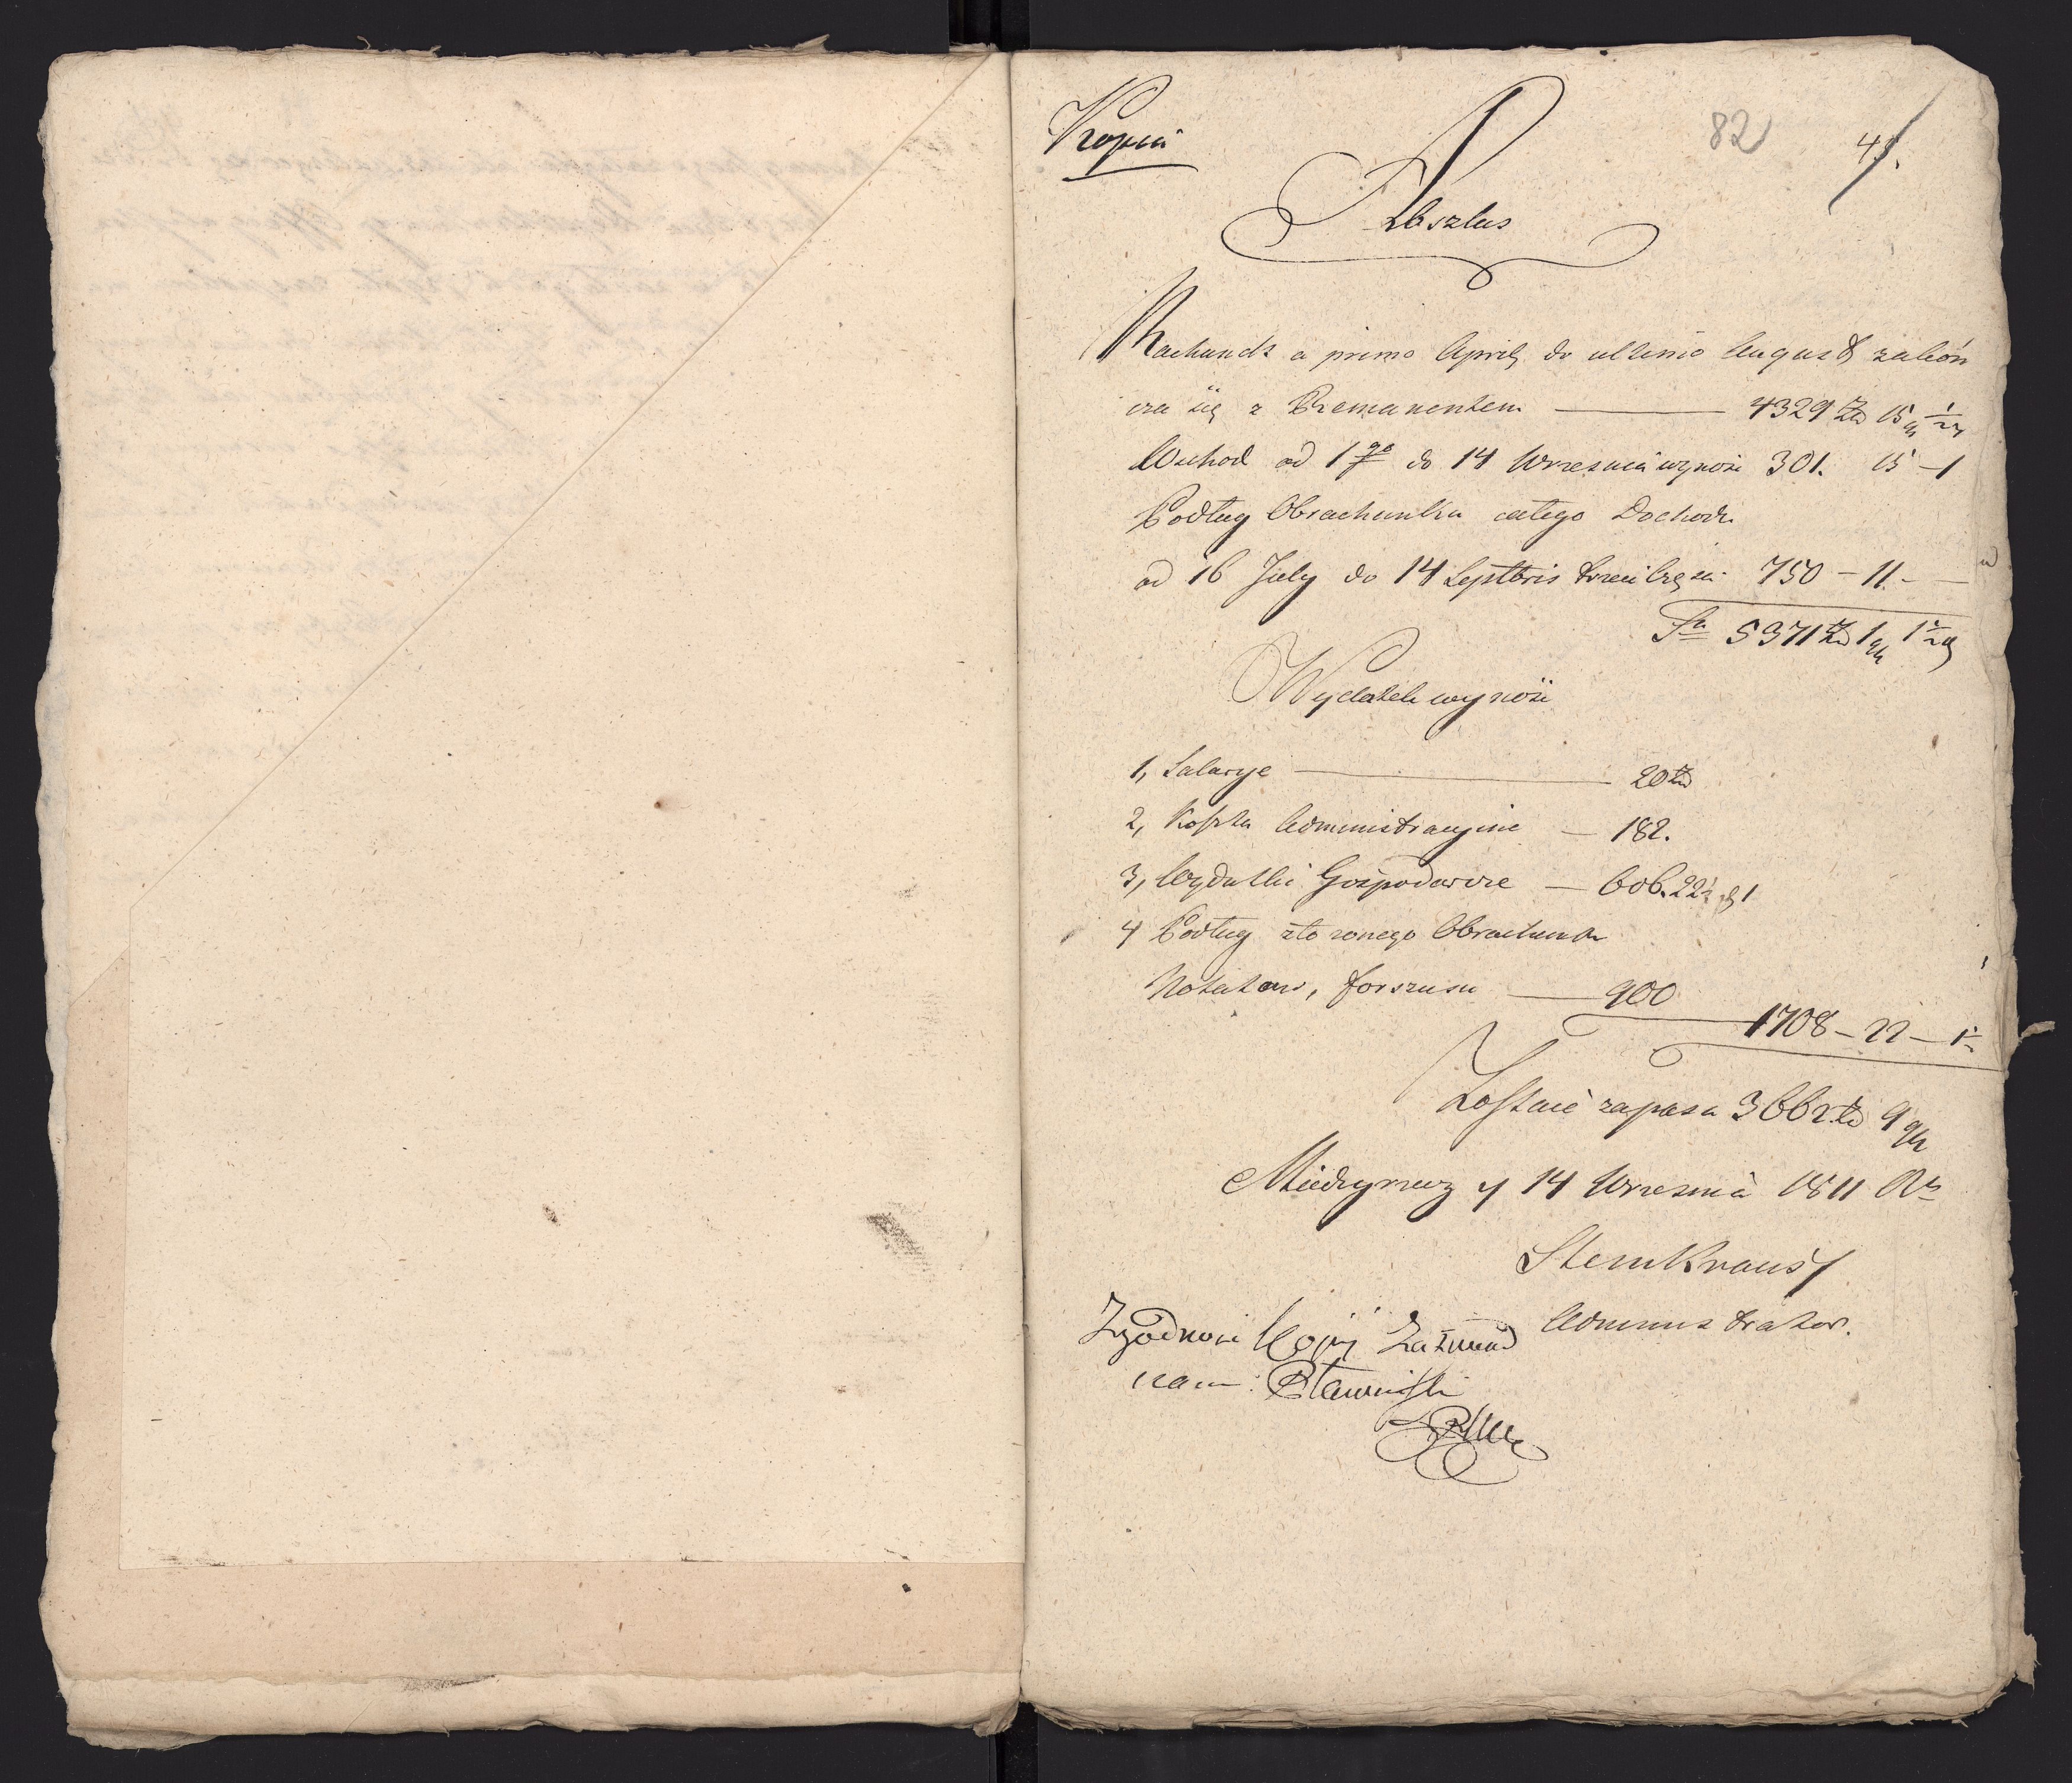 Kopia
82
45.
Abszlus
Rachunek a primo Aprily do ultimo August zakon
cza się z Remanentem — 4329 Zł 15 gr ½
Wchod od 1go do 14 Wrzesnia wynosi 301. 15 – 1
Podług Obrachunku całego Dochodu
od 16 July do 14 Septbris trzeci Częsci 750 – 11. –
Sa 5371 Zł 1 gr 1½
Wydatek wynosi
1, Salarye — 20 Zł
2, Koszta Administracyine — 182.
3, Wydatki Gospodarcze — 606. 22½ 1
4 Podług złozonego Obrachunku
Notatow, forszusu — 900
1708 – 22 – 1½
Zostaie zapasu 3662 Zł 9 gr
Miedzyrzecz y 14 Wrzesnia 1811 Ro
Administrator.
Zgodnosc Kopij